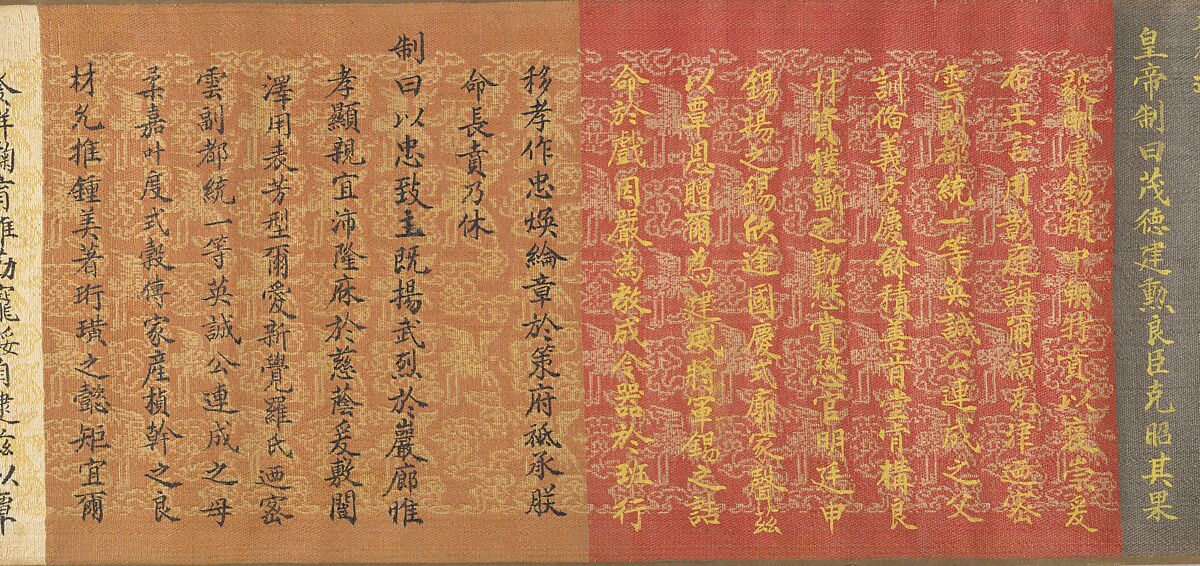 皇帝制曰茂德建勲良臣克昭其果
毅酬庸錫類中朝特賁以褒崇爰
布王言用彰庭誨爾福克津迺密
雲副都統一等英誠公連成之父
訓脩義方慶餘積善肯堂肯構良
材資樸斲之勤懋賞懋官明廷申
錫揚之錫欣逢國慶式廓家聲茲
以覃恩贈爾為建威將軍錫之誥
命於戲因嚴為敬成令器於班行
移孝作忠煥綸章於策府祗承朕
命長賁乃休
制曰以忠致主既揚武烈於巖廊惟
孝顯親宜沛隆庥於慈蔭爰敷閨
澤用表芳型爾愛新覺羅氏迺密
雲副都統一等英誠公連成之母
柔嘉叶度式榖傳家產楨幹之良
材允推鍾美著珩璜之懿矩宜爾
發祥鞠育惟勤寵綏自逮茲以覃